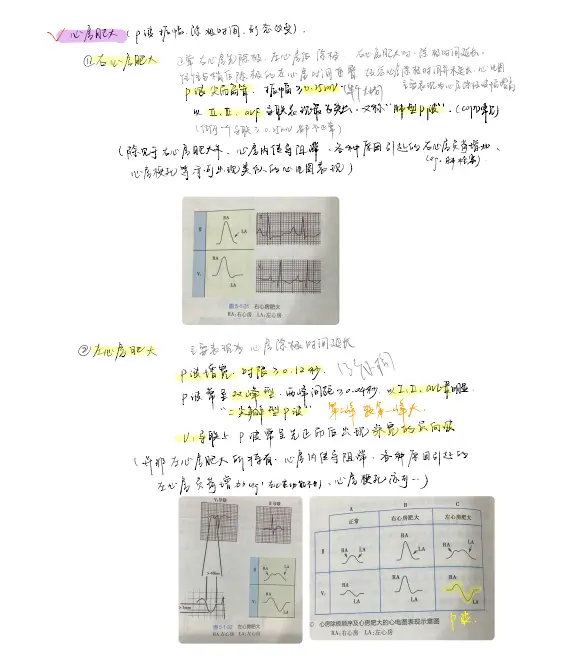 心房肥大（P波振幅、除极时间、形态改变）.
① 右心房肥大 正常右心房先除极，左心房后除极 右心房肥大时，除极时间延长，
往往与稍后除极的左心房时间重叠 总心房除极时间并未延长，心电图
P波尖而高耸，振幅≥0.25mV
主要表现为心房除极波振幅增高
以Ⅱ、Ⅲ、avF导联表现最为突出，又称"肺型P波".（COPD常见）
（除见于右心房肥大外，心房内传导阻滞、各种原因引起的右心房负荷增加、
（eg. 肺栓塞）
心房梗死等亦可出现类似的心电图表现）
RA
Ⅱ LA
RA
V₁ LA
图5-1-31 右心房肥大
RA:右心房 LA:左心房
② 左心房肥大 主要表现为心房除极时间延长
P波增宽，时限≥0.12秒，
P波常呈双峰型，两峰间距≥0.04秒，以Ⅰ、Ⅱ、avL最明显
"二尖瓣型P波"
V₁导联上P波常呈先正而后出现深宽的负向波
（并非左心房肥大所特有，心房内传导阻滞，各种原因引起的
左心房负荷增加，心房梗死亦可…）
V₁导联 Ⅱ导联
RA LA
Ⅱ
RA
V₁ LA
图5-1-32 左心房肥大
RA:右心房 LA:左心房
A B C
正常 右心房肥大 左心房肥大
Ⅱ RA LA RA LA RA LA
V₁ RA LA RA LA RA LA
P波
心房除极顺序及心房肥大的心电图表现示意图
RA:右心房 LA:左心房